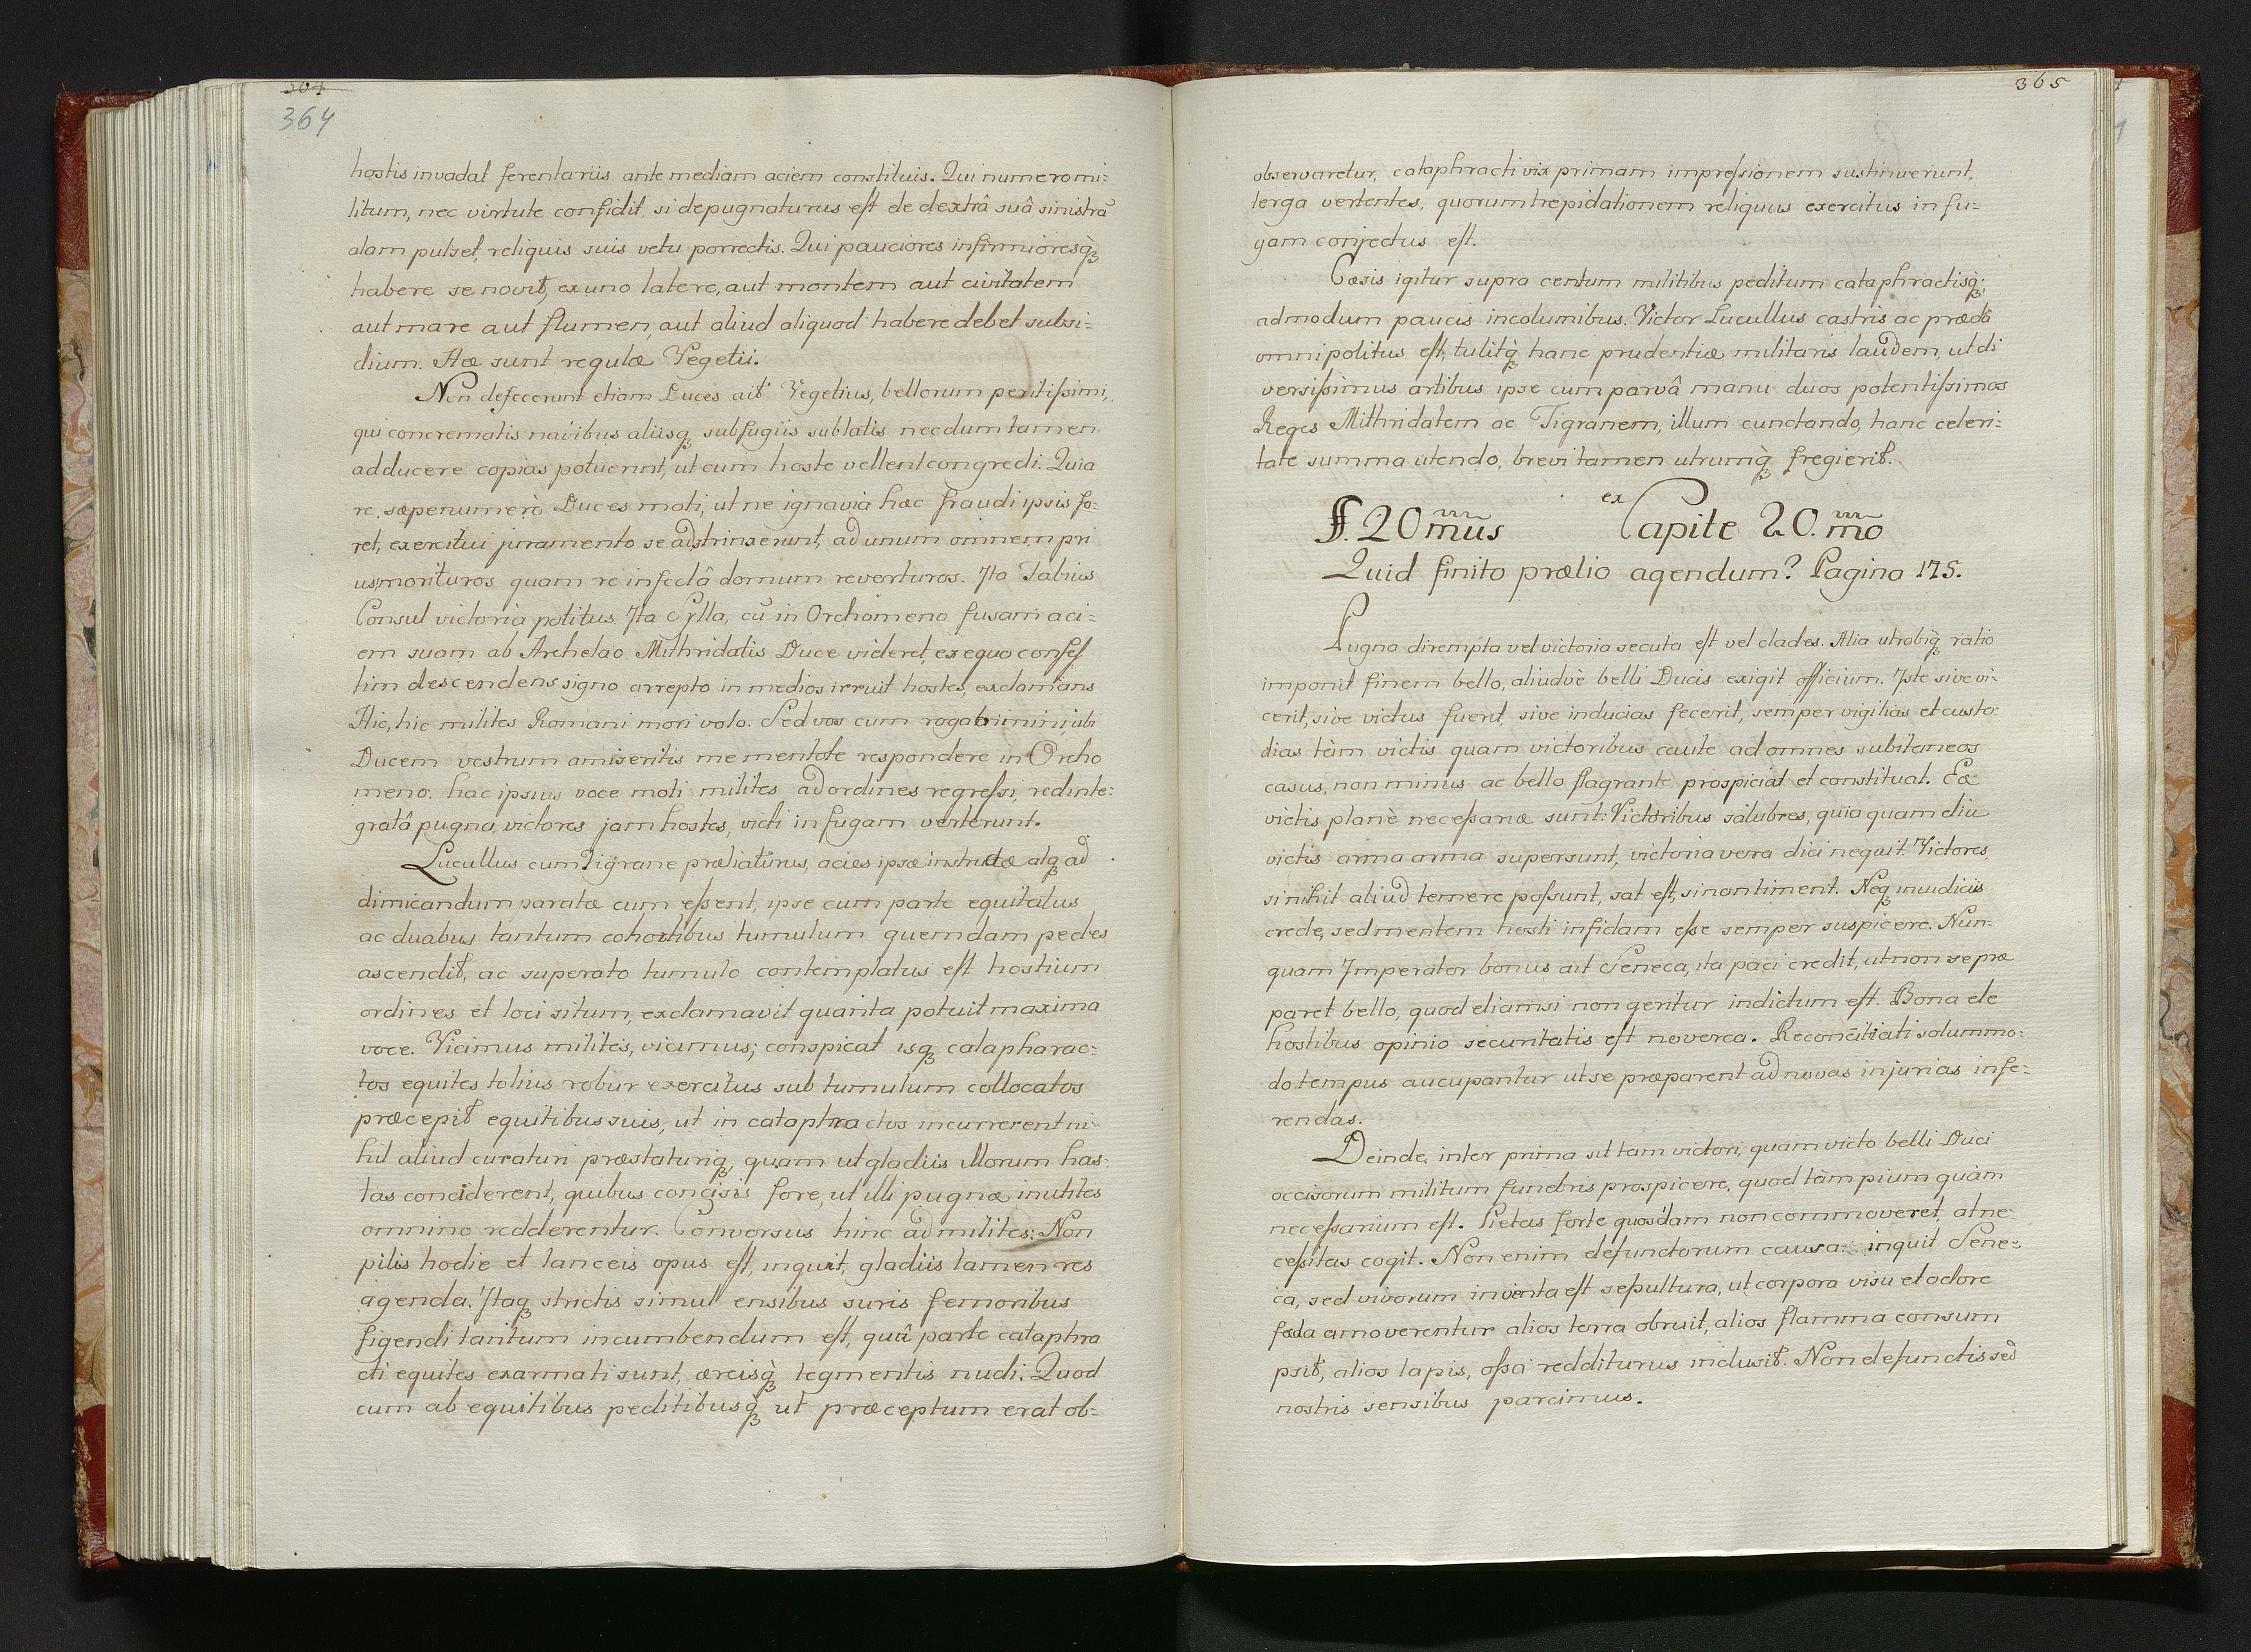 364
364
hostis invadat ferentariis ante mediam aciem constituis. Qui numero mi=
litum, nec virtute confidit, si depugnaturus est de dextrâ suâ sinistrã
alam pulset, reliquis suis velu porrectis. Qui pauciores infirmioresq̀ꝫ
habere se novit, ex uno latere, aut montem aut civitatem
aut mare aut flumen, aut aliud aliquod habere debet subsi=
dium. Hæ sunt regulæ Vegetii.
Non defecerunt etiam Duces ait Vegetius, bellorum peritissimi,
qui concrematis navibus aliisqꝫ subfugiis sublatis necdum tamen
adducere copias potuerint, ut cum hoste vellent congredi. Quia
re sæpenumerò Duces moti, ut ne ignavia hæc fraudi ipsis fo=
ret, exercitui juramento se adstrinxerunt, ad unum omnem pri
us morituros quam re infectâ domum reverturos. Ita Fabius
Consul victoriâ potitus. Ita Sylla, cũ in Orchomeno fusam aci=
em suam ab Archelao Mithridatis Duce videret, ex equo confes
tim descendens signo arrepto in medios irruit hostes, exclamans
Hic, hic milites Romani mori volo. Sed vos cum rogabimini, ubi
Ducem vestrum amiseritis mementote respondere in Orcho
meno. hac ipsius voce moti milites ad ordines regressi, redinte=
gratâ pugna, victores jam hostes, victi in fugam verterunt.
Lucullus cum Tigrane præliaturus, acies ipsæ instructæ atqꝫ ad
dimicandum paratæ cum essent, ipse cum parte equitatus
ac duabus tantum cohortibus tumulum quemdam pedes
ascendit, ac superato tumulo contemplatus est hostium
ordines et loci situm, exclamavit quanta potuit maxima
voce. Vicimus milites, vicimus; conspicat isqꝫ catapharac=
tos equites tolius robur exercitus sub tumulum collocatos
præcepit equitibus suis, ut in cataphractos incurrerent ni=
hil aliud curaturi præstaturiqꝫ, quam ut gladiis illorum has=
tas conciderent, quibus concisis fore, ut illi pugnæ inutiles
omnino redderentur. Conversus hinc ad milites: Non
pilis hodie et lanceis opus est, inquit, gladiis tamen res
agenda. Itaqꝫ strictis simul ensibus suris femoribus
figendi tantum incumbendum est, quâ parte cataphra
cti equites exarmati sunt, æreisq̀ꝫ tegmentis nudi. Quod
cum ab equitibus peditibusq̀ꝫ ut præceptum erat ob=
365
observaretur, cataphracti vix primam impressionem sustinuerunt,
terga vertentes, quorum trepidationem reliquus exercitus in fu=
gam conjectus est.
Cæsis igitur supra centum militibus peditum cataphractisq̀ꝫ
admodum paucis incolumibus. Victor Lucullus castris ac prædâ
omni politus est, tulitq̀ꝫ hanc prudentiæ militaris laudem, ut di
versissimus artibus ipse cum parvâ manu duos potentissimos
Reges Mithridatem ac Tigranem, illum cunctando, hanc celeri=
tate summa utendo, brevi tamen utrumq̀ꝫ fregierit.
§. 20mus ex Capite 20.mo
Quid finito prælio agendum? Pagina 175.
Pugna dirempta vel victoria secuta est vel clades. Alia utrobiq̀ꝫ ratio
imponit finem bello, aliudvè belli Ducis exigit officium. Iste sive vi=
cerit, sive victus fuerit, sive inducias fecerit, semper vigilias et custo=
dias tàm victis quam victoribus caute ad omnes subitaneos
casus, non minus ac bello flagrante prospiciat et constituat. Eæ
victis planè necessariæ sunt: Victoribus salubres, quia quam diu
victis arma arma supersunt, victoria vera dici nequit. Victores,
si nihil aliud temere possunt, sat est, si non timent. Neqꝫ inuidiciis
crede, sed mentem hosti infidam esse semper suspicere. Nun=
quam Imperator bonus ait Seneca, ita paci credit, ut non se præ
paret bello, quod etiamsi non geritur indictum est. Bona de
hostibus opinio securitatis est noverca. Reconciliati solummo=
do tempus aucupantur ut se præparent ad novas injurias infe=
rendas.
Deinde, inter prima sit tam victori, quam victo belli Duci
occisorum militum funebris prospicere, quod tàm pium quàm
necessarium est. Pietas forte quosdam non commoveret, at ne=
cessitas cogit. Non enim defunctorum causa inquit Sene=
ca, sed vivorum inventa est sepultura, ut corpora visu et odore
fæda amoverentur alios terra obruit, alios flamma consum
psit, alios lapis, ossa redditurus inclusit. Non defunctis sed
nostris sensibus parcimus.